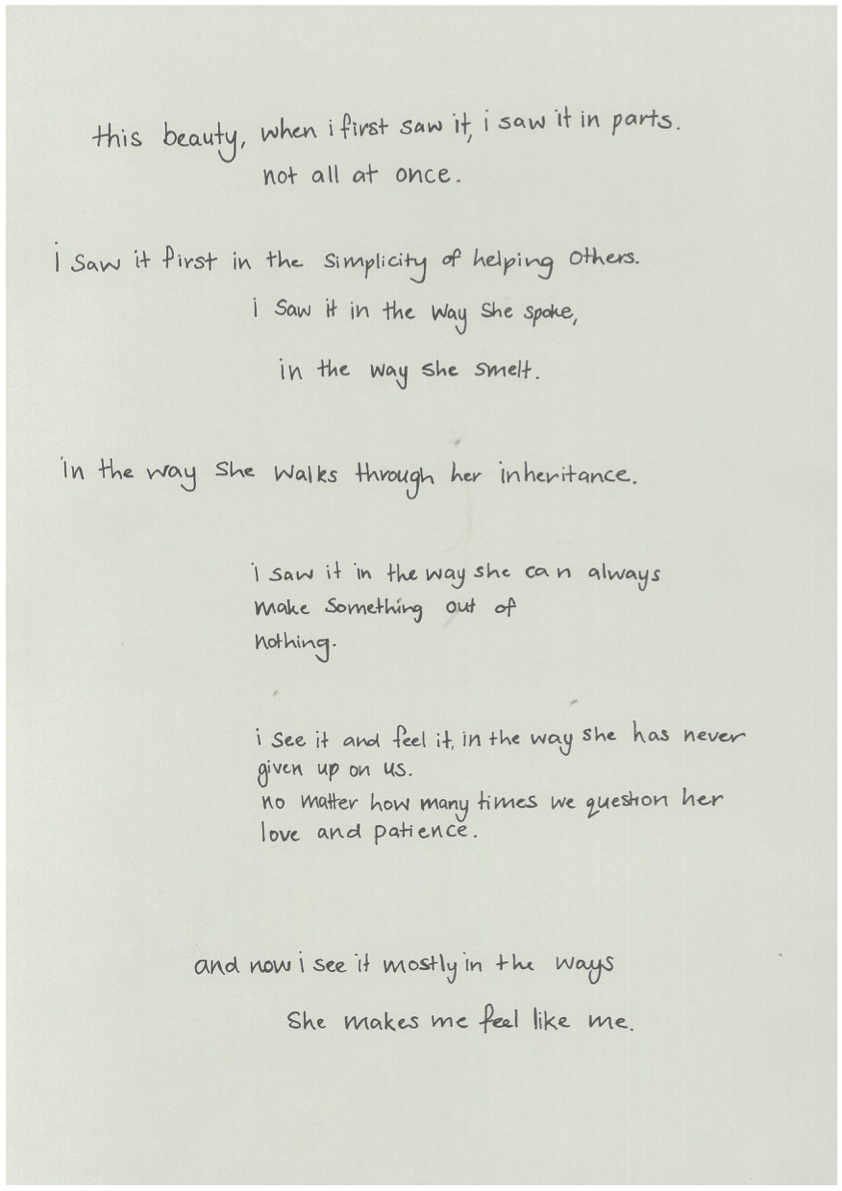 this beauty, when i first saw it, i saw it in parts.
not all at once.
i saw it first in the simplicity of helping others.
i saw it in the way she spoke,
in the way she smelt.
in the way she walks through her inheritance.
i saw it in the way she can always
make something out of
nothing.
i see it and feel it, in the way she has never
given up on us.
no matter how many times we question her
love and patience.
and now i see it mostly in the ways
she makes me feel like me.